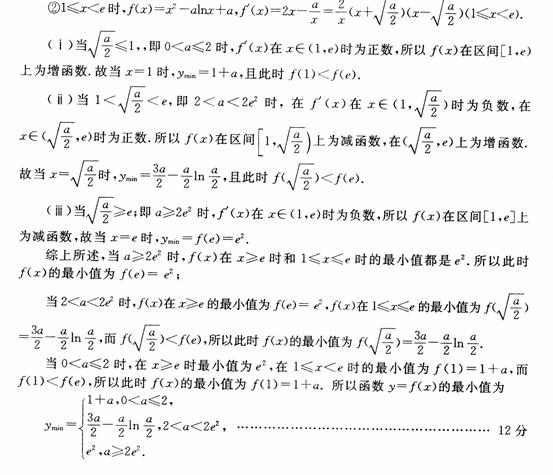 ②1≤x<e时,f(x)=x²-alnx+a,f′(x)=2x-a/x=2/x(x+√(a/2))(x-√(a/2))(1≤x<e).
(ⅰ)当√(a/2)≤1,,即0<a≤2时,f′(x)在x∈(1,e)时为正数,所以f(x)在区间[1,e)
上为增函数.故当x=1时,y_min=1+a,且此时f(1)<f(e).
(ⅱ)当1<√(a/2)<e,即2<a<2e²时,在f′(x)在x∈(1,√(a/2))时为负数,在
x∈(√(a/2),e)时为正数.所以f(x)在区间[1,√(a/2))上为减函数,在(√(a/2),e)上为增函数.
故当x=√(a/2)时,y_min=3a/2-a/2 ln a/2,且此时f(√(a/2))<f(e).
(ⅲ)当√(a/2)≥e;即a≥2e²时,f′(x)在x∈(1,e)时为负数,所以f(x)在区间[1,e]上
为减函数,故当x=e时,y_min=f(e)=e².
综上所述,当a≥2e²时,f(x)在x≥e时和1≤x≤e时的最小值都是e².所以此时
f(x)的最小值为f(e)=e²;
当2<a<2e²时,f(x)在x≥e的最小值为f(e)=e²,f(x)在1≤x≤e的最小值为f(√(a/2))
=3a/2-a/2 ln a/2,而f(√(a/2))<f(e),所以此时f(x)的最小值为f(√(a/2))=3a/2-a/2 ln a/2.
当0<a≤2时,在x≥e时最小值为e²,在1≤x<e时的最小值为f(1)=1+a,而
f(1)<f(e),所以此时f(x)的最小值为f(1)=1+a.所以函数y=f(x)的最小值为
y_min={1+a,0<a≤2,
3a/2-a/2 ln a/2,2<a<2e², …………………………………………… 12分
e²,a≥2e².